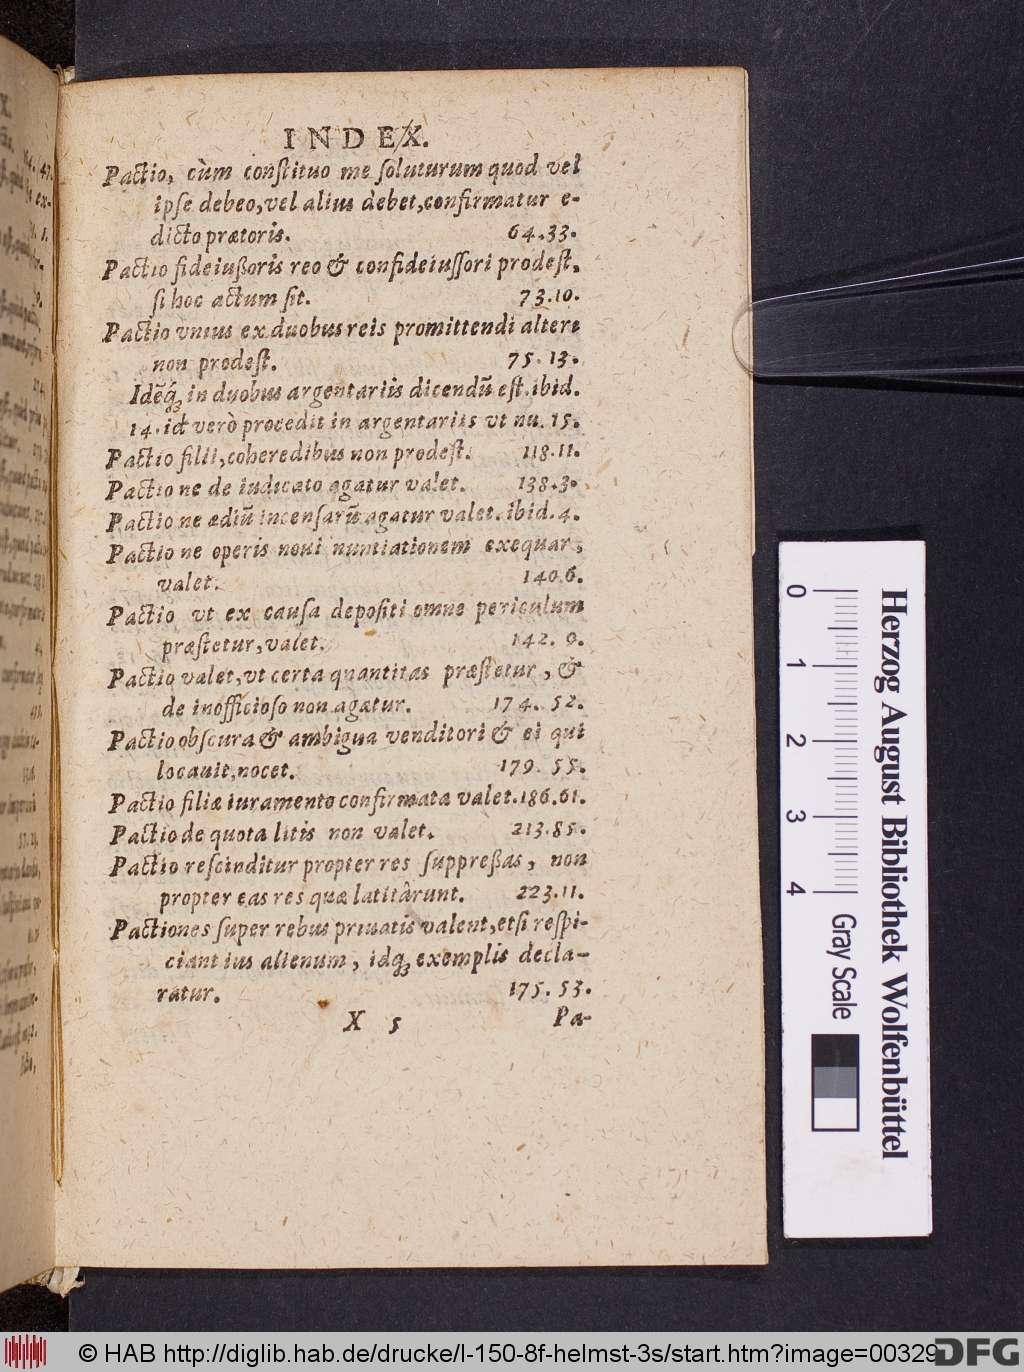 INDEX.
Pactio, cùm constituo me soluturum quod vel
ipse debeo, vel alius debet, confirmatur e-
dicto prætoris. 64.33.
Pactio fideiußoris reo & confideiussori prodest,
si hoc actum sit. 73.10.
Pactio vnius ex duobus reis promittendi alteri
non prodest. 75.13.
Idēq́ꝫ in duobus argentariis dicendū est. ibid.
14. id verò procedit in argentariis vt nu. 15.
Pactio filii, coheredibus non prodest. 118.11.
Pactio ne de iudicato agatur valet. 138.3.
Pactio ne ædiū incensarū agatur valet. ibid. 4.
Pactio ne operis noui nuntiationem exequar,
valet. 140.6.
Pactio vt ex causa depositi omne periculum
præstetur, valet. 142. 9.
Pactio valet, vt certa quantitas præstetur, &
de inofficioso non agatur. 174. 52.
Pactio obscura & ambigua venditori & ei qui
locauit, nocet. 179. 55.
Pactio filiæ iuramento confirmata valet. 186.61.
Pactio de quota litis non valet. 213.85.
Pactio rescinditur propter res suppreßas, non
propter eas res quæ latitârunt. 223.11.
Pactiones super rebus priuatis valent, etsi respi-
ciant ius alienum, idqꝫ exemplis decla-
ratur. 175.53.
X 5 Pa-
0 1 2 3 4
Gray Scale
Herzog August Bibliothek Wolfenbüttel
© HAB http://diglib.hab.de/drucke/l-150-8f-helmst-3s/start.htm?image=00329
DFG